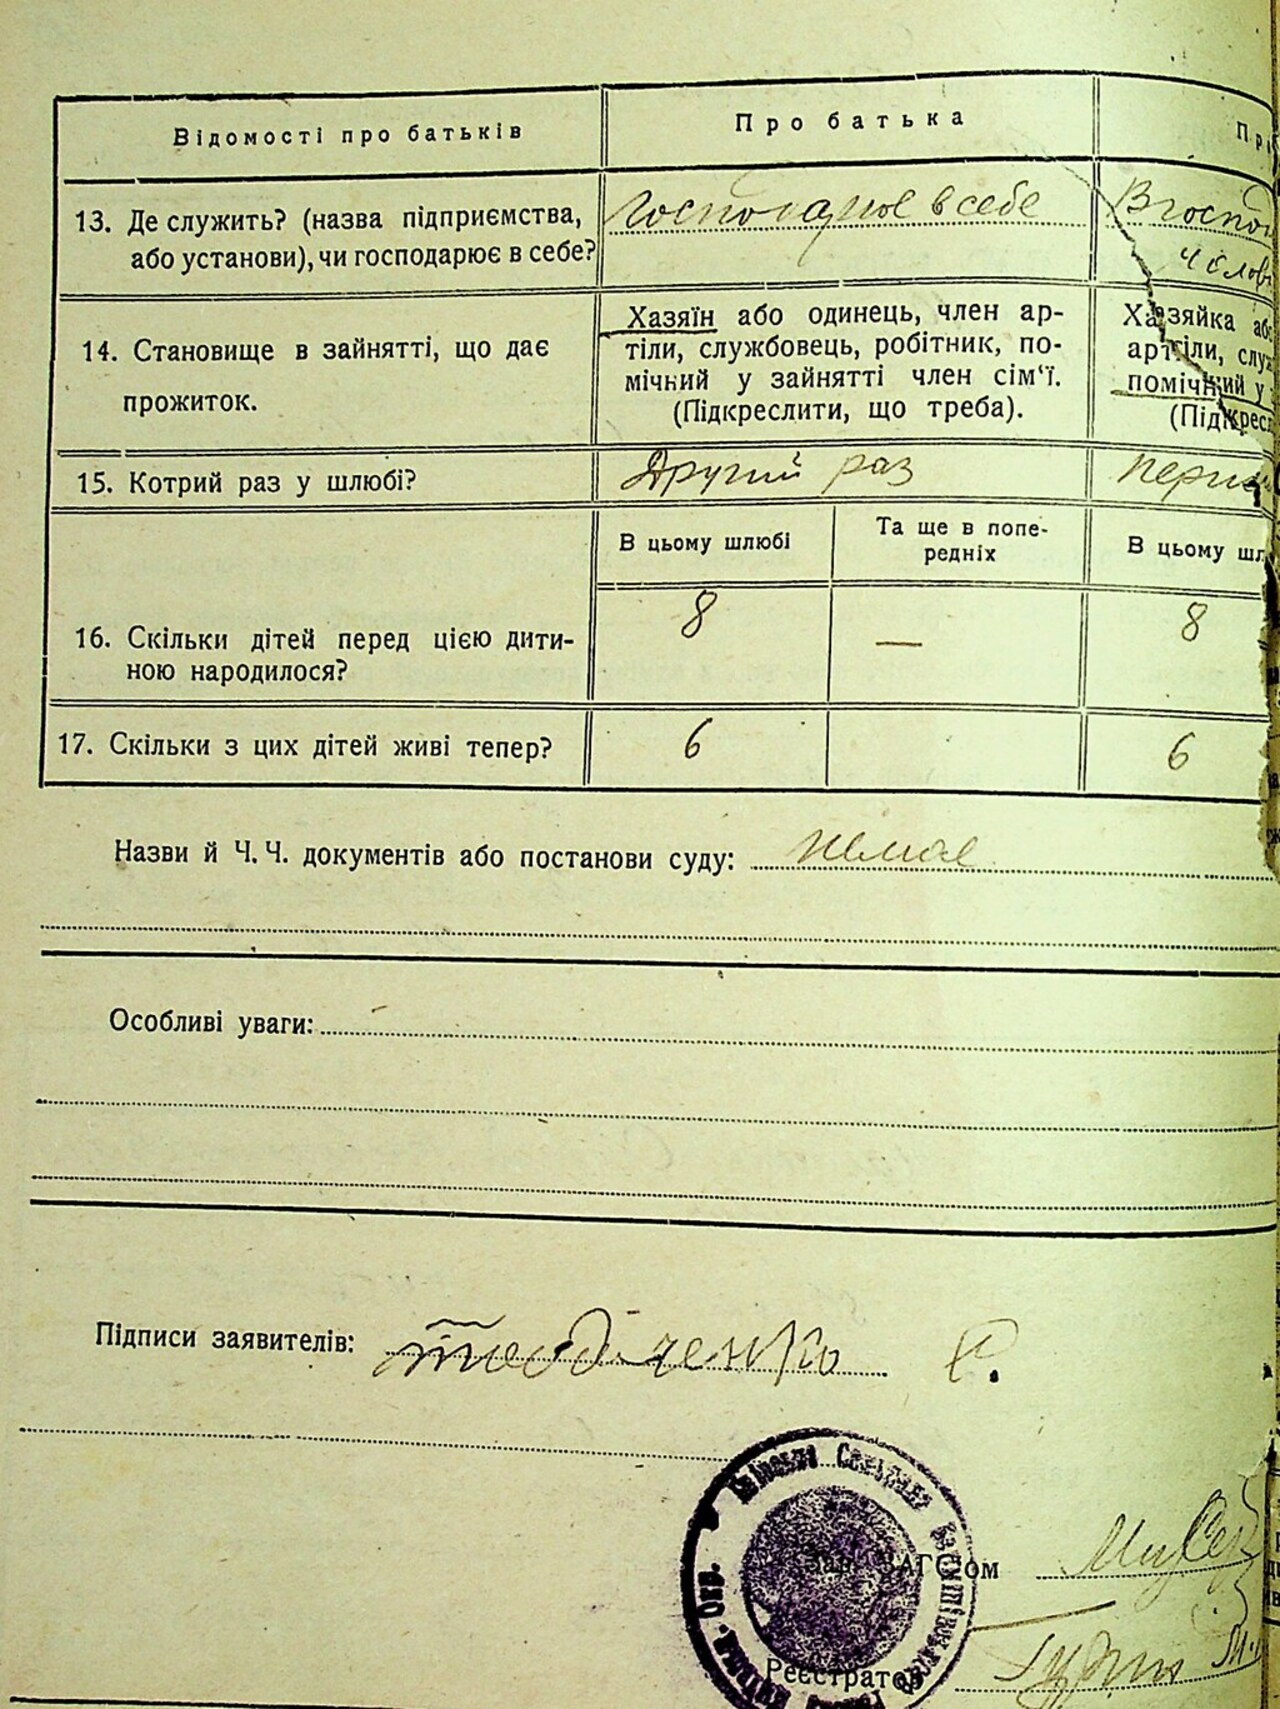 Відомості про батьків
Про батька
Пр
13. Де служить? (назва підприємства, або установи), чи господарює в себе?
Господарює в себе
В господ
чолов
14. Становище в зайнятті, що дає прожиток.
Хазяїн або одинець, член ар-
тіли, службовець, робітник, по-
мічний у зайнятті член сім‘ї.
(Підкреслити, що треба).
Хазяйка або
артіли, служ
помічний у
(Підкресл
15. Котрий раз у шлюбі?
Другий раз
Перш
В цьому шлюбі
Та ще в попе-
редніх
В цьому шл
16. Скільки дітей перед цією дити-
ною народилося?
8
—
8
17. Скільки з цих дітей живі тепер?
6
6
Назви й Ч. Ч. документів або постанови суду: немає
Особливі уваги:
Підписи заявителів:
Зав. ЗАГС'ом
Реєстратор